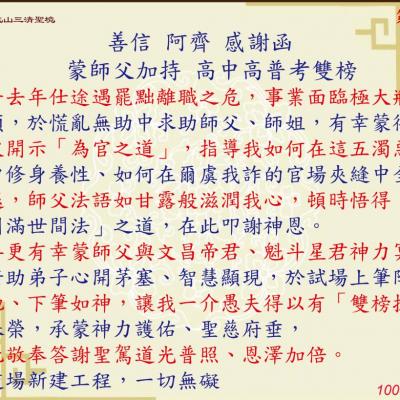 山三清聖境
善信 阿齊 感謝函
蒙師父加持 高中高普考雙榜
去年仕途遇罷黜離職之危，事業面臨極大
，於慌亂無助中求助師父、師姐，有幸蒙
開示「為官之道」，指導我如何在這五濁
修身養性、如何在爾虞我詐的官場夾縫中
，師父法語如甘露般滋潤我心，頓時悟得
滿世間法」之道，在此叩謝神恩。
更有幸蒙師父與文昌帝君、魁斗星君神力
助弟子心開茅塞、智慧顯現，於試場上筆
、下筆如神，讓我一介愚夫得以有「雙榜
榮，承蒙神力護佑、聖慈府垂，
敬奉答謝聖駕道光普照、恩澤加倍。
場新建工程，一切無礙
100